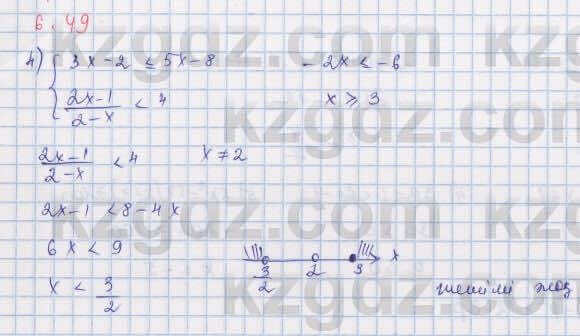 6.49
4) { 3x-2 ≤ 5x-8
-2x ≤ -6
(2x-1)/(2-x) < 4
x ≥ 3
(2x-1)/(2-x) < 4
x ≠ 2
2x-1 < 8-4x
6x < 9
x < 3/2
3/2 2 3 x
шешімі жоқ
kzgdz.com
kzgdz.com
kzgdz.com